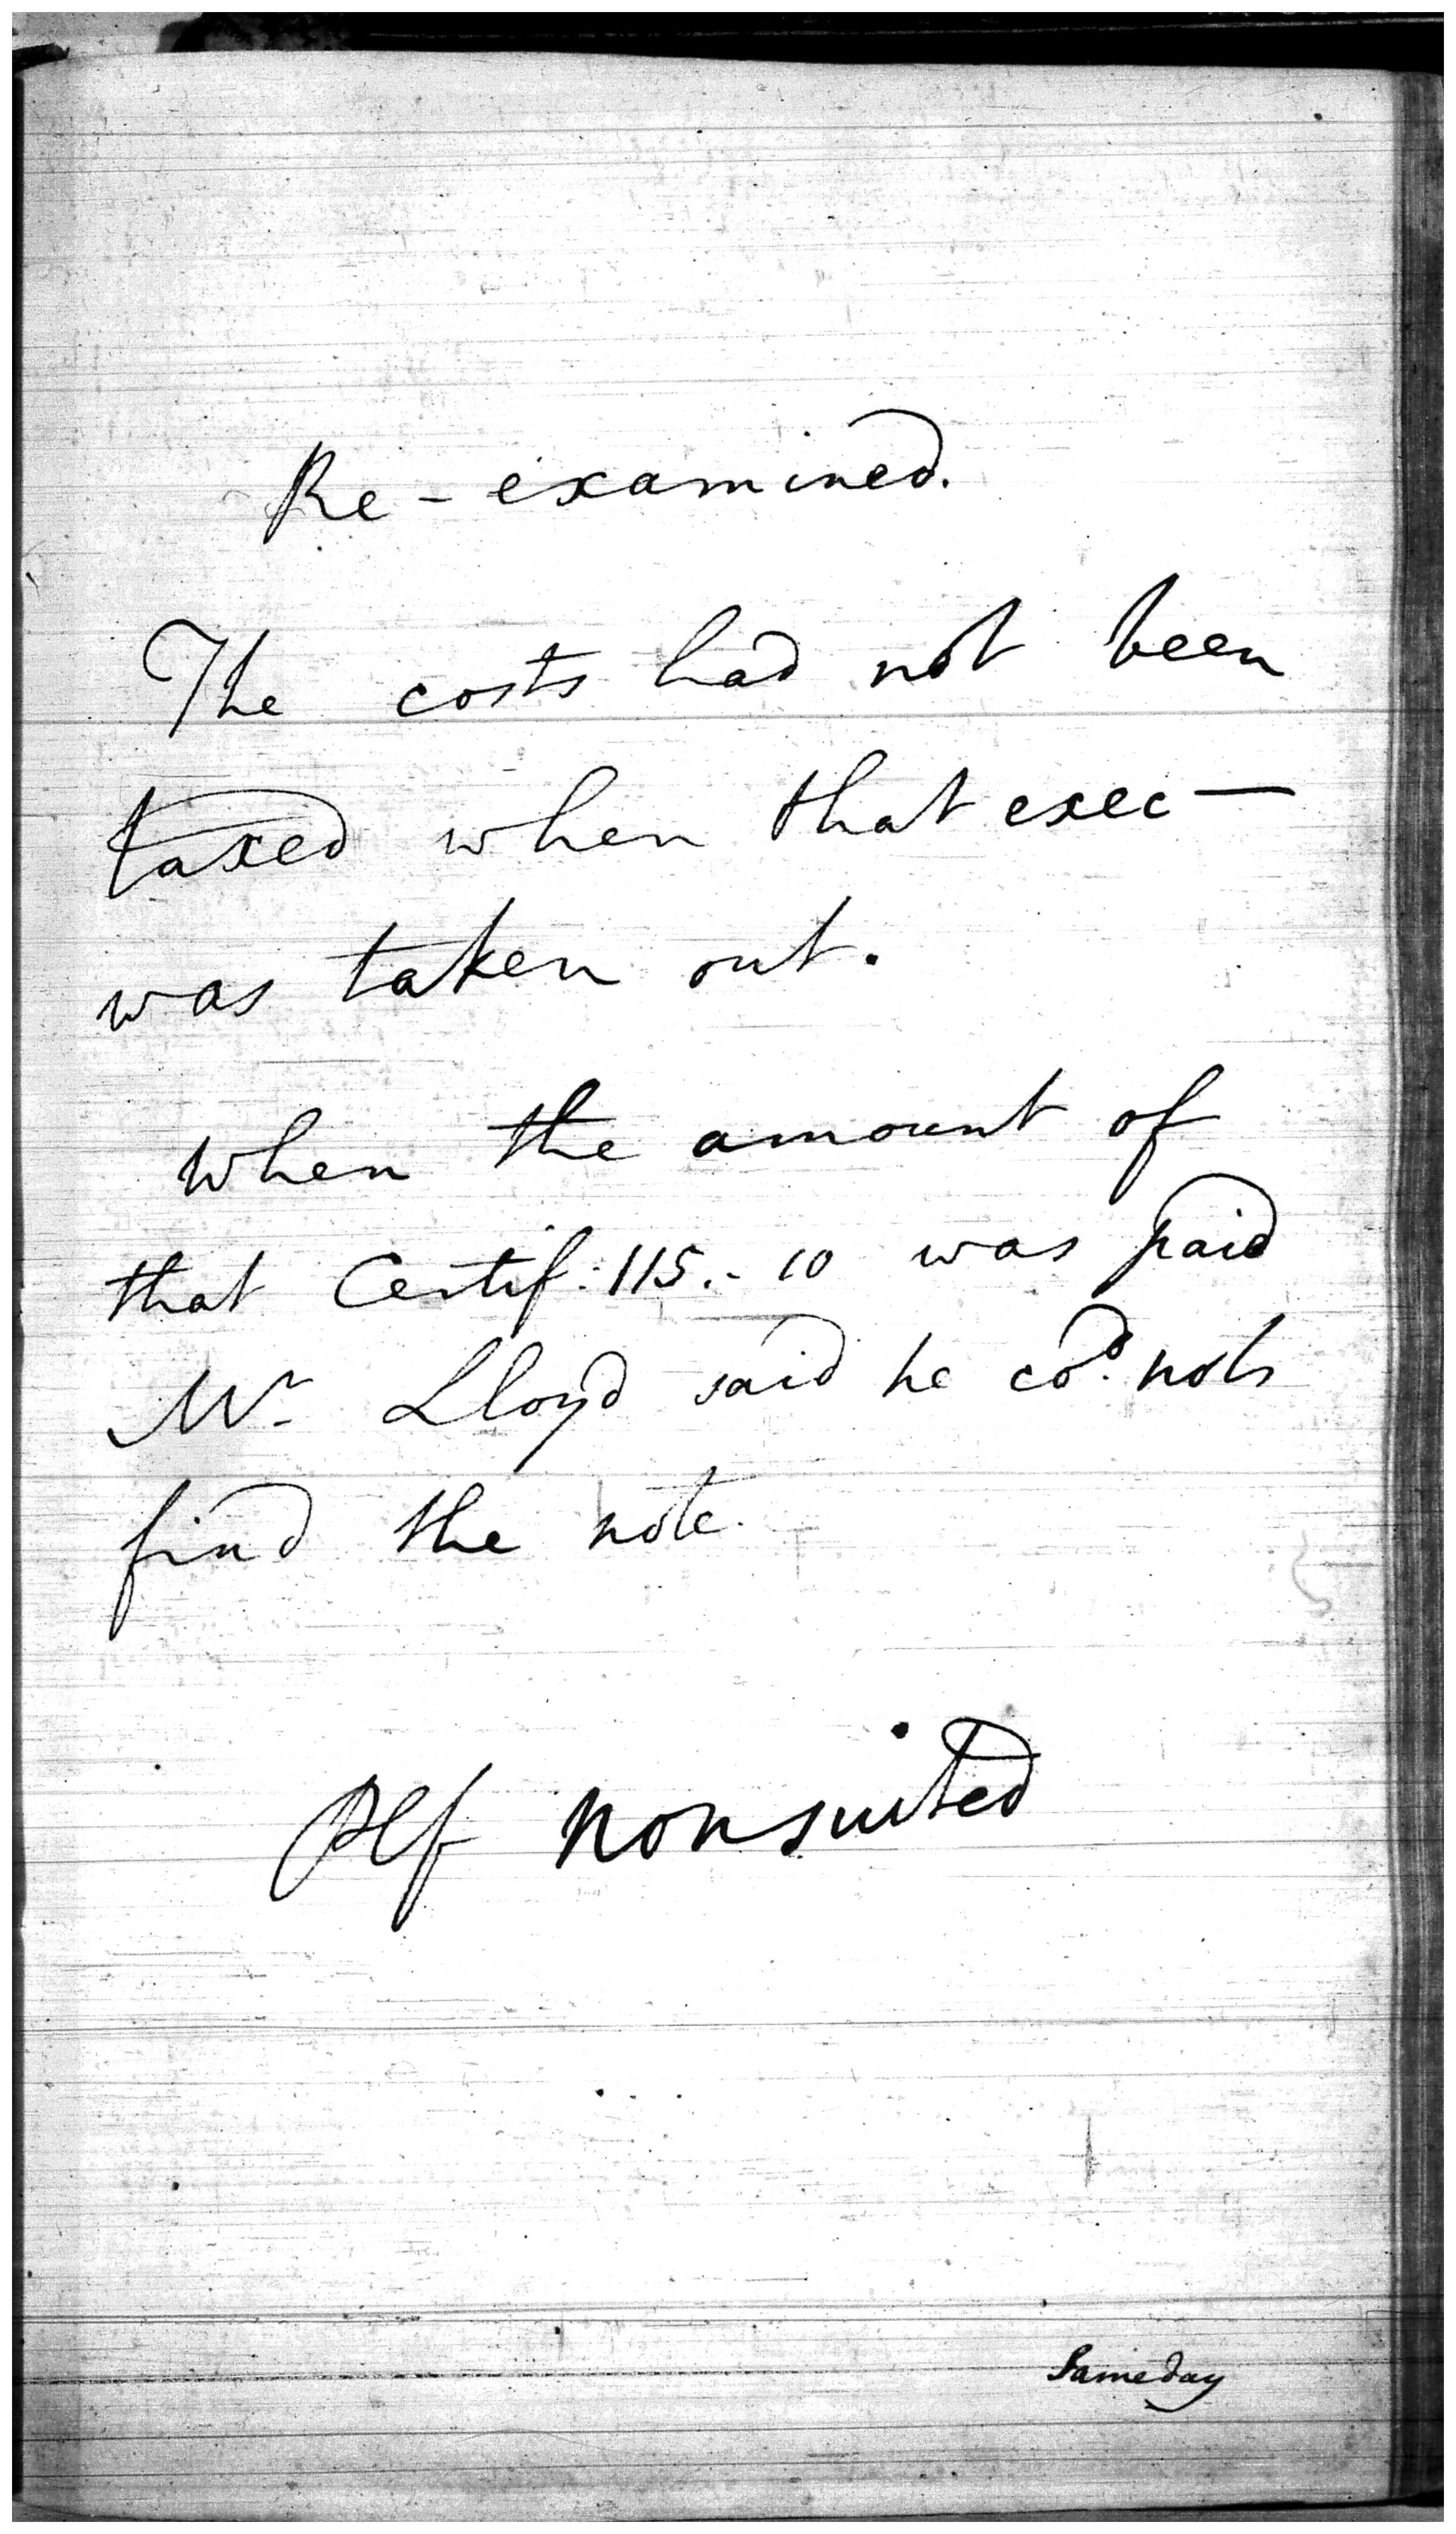 Re-examined.
The costs had not been
taxed when that exec—
was taken out.
When the amount of
that Certif: 115.-10 was paid
Mr Lloyd said he cod. not
find the note.
Plf nonsuited
Same day